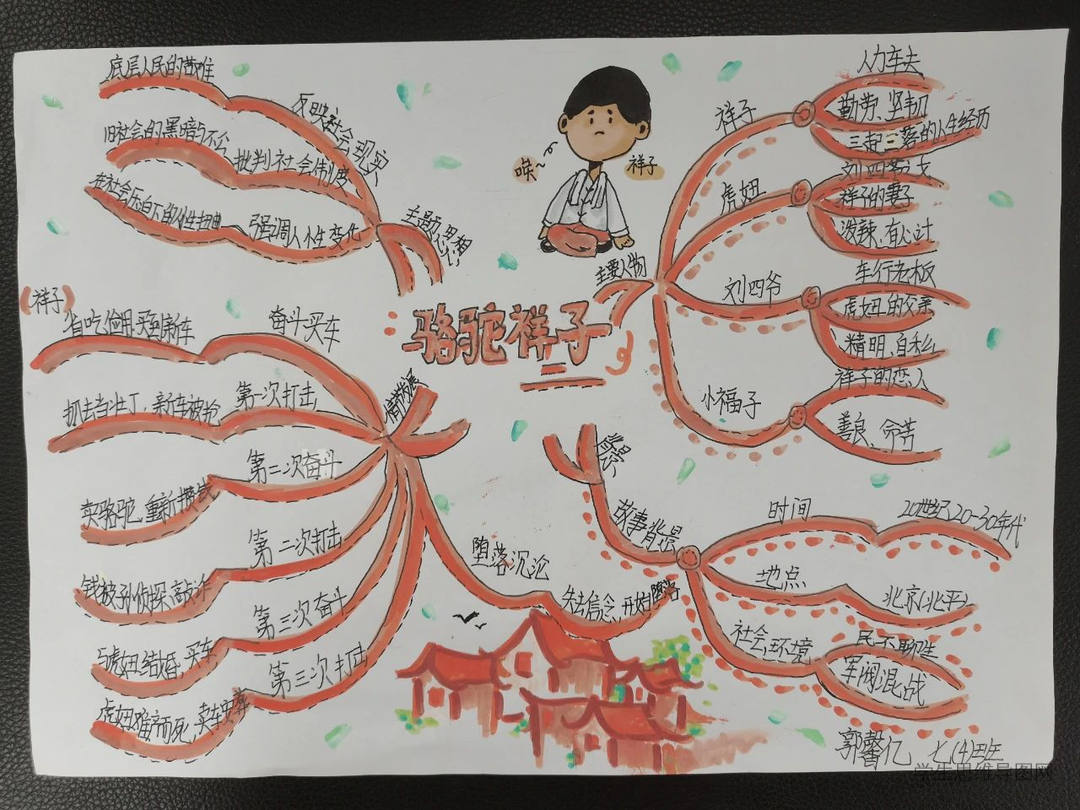 骆驼祥子
主要人物
祥子
人力车夫
勤劳、坚韧
三起三落的人生经历
虎妞
刘四爷之女
祥子的妻子
泼辣、有心计
刘四爷
车行老板
虎妞的父亲
精明、自私
小福子
祥子的恋人
善良、命苦
唉~
祥子
主题思想
反映社会现实
底层人民的苦难
批判社会制度
旧社会的黑暗与不公
强调人性变化
在社会压迫下的人性扭曲
情节发展
(祥子)
奋斗买车
省吃俭用、买到新车
第一次打击
抓去当壮丁、新车被抢
第二次奋斗
卖骆驼、重新攒钱
第二次打击
钱被孙侦探敲诈
第三次奋斗
与虎妞结婚、买车
第三次打击
虎妞难产而死,卖车安葬
堕落沉沦
失去信念、开始堕落
背景
故事背景
时间
20世纪20-30年代
地点
北京(北平)
社会环境
民不聊生
军阀混战
郭馨亿 七(4)班
学生思维导图网